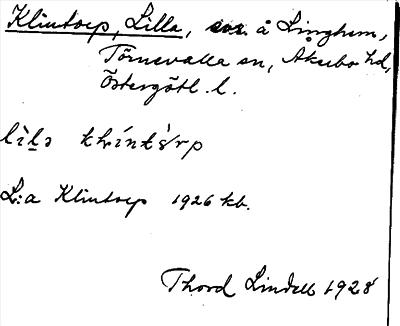 Klintorp, Lilla, å Linghem,
Törnevalla sn, Åkerbo hd,
Östergötl. l.
L:a Klintorp 1926 kb.
Thord Lindell 1928